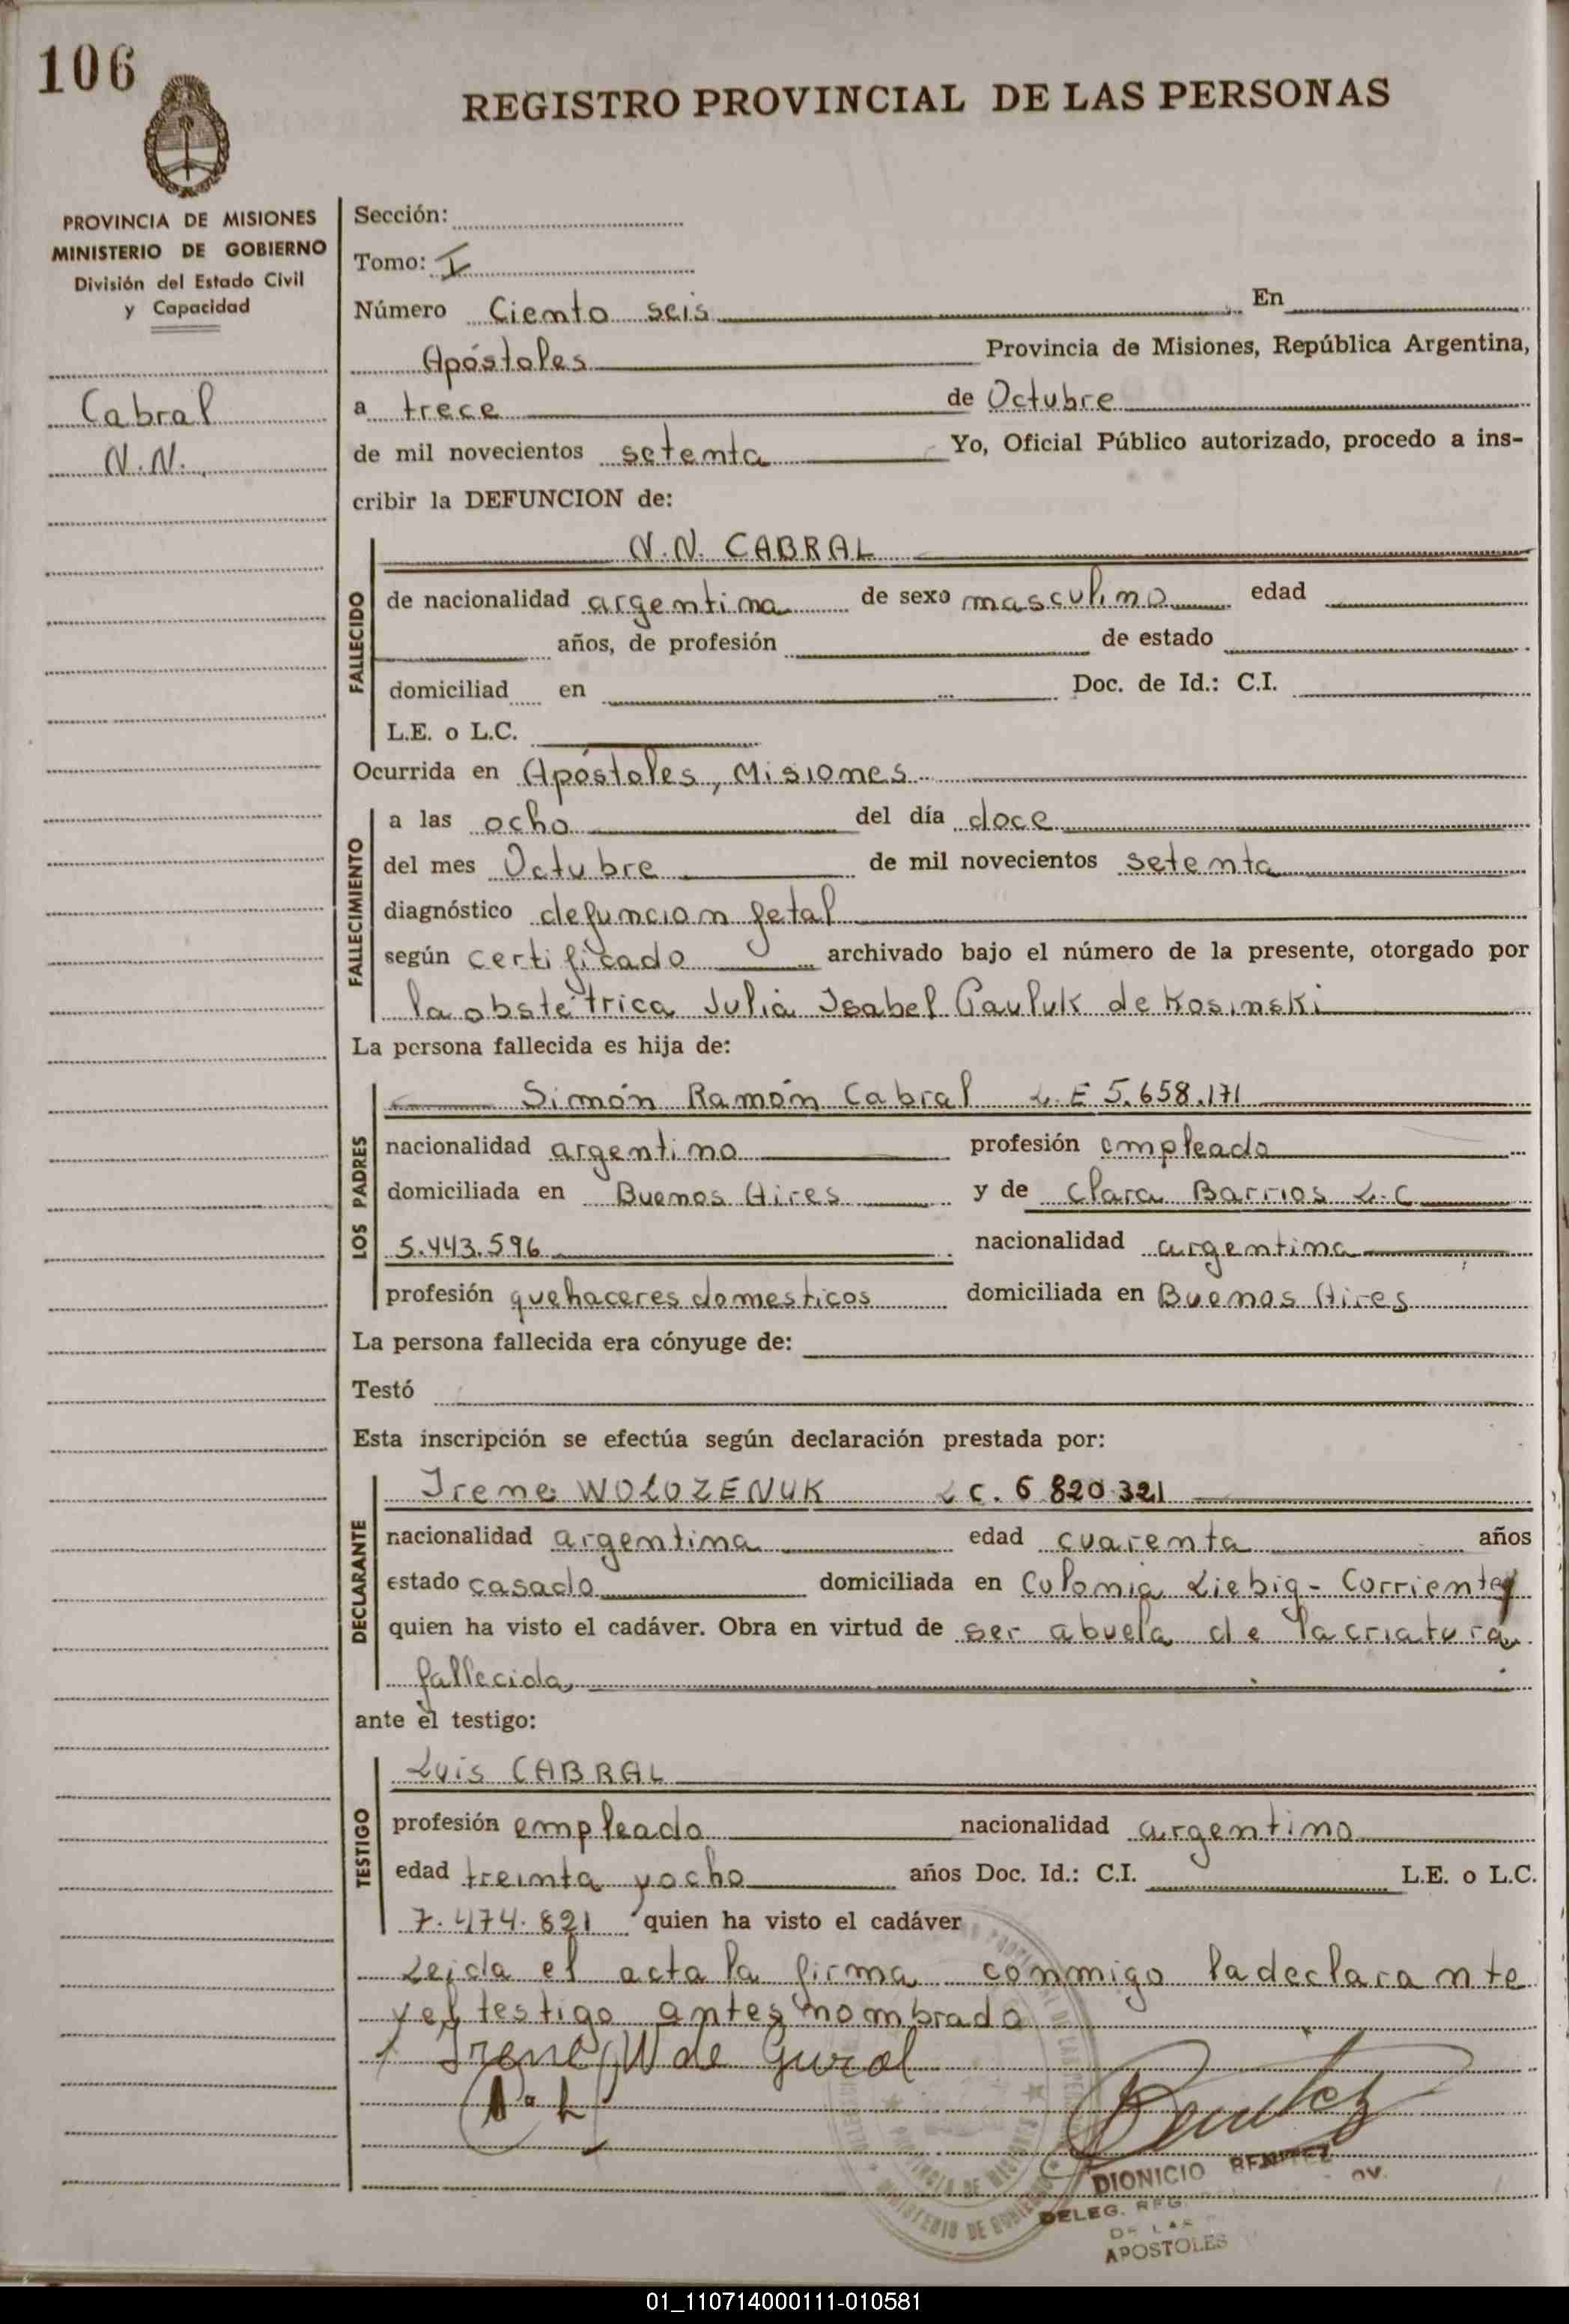 106
REGISTRO PROVINCIAL DE LAS PERSONAS
PROVINCIA DE MISIONES
MINISTERIO DE GOBIERNO
División del Estado Civil
y Capacidad
Cabral
N.N.
Sección:
Tomo: I
Número Ciento seis En
Apóstoles Provincia de Misiones, República Argentina,
a trece de Octubre
de mil novecientos setenta Yo, Oficial Público autorizado, procedo a ins-
cribir la DEFUNCION de:
FALLECIDO
N.N. CABRAL
de nacionalidad argentina de sexo masculino edad
años, de profesión de estado
domiciliad en Doc. de Id.: C.I.
L.E. o L.C.
Ocurrida en Apóstoles, Misiones
FALLECIMIENTO
a las ocho del día doce
del mes Octubre de mil novecientos setenta
diagnóstico defuncion fetal
según certificado archivado bajo el número de la presente, otorgado por
la obstétrica Julia Isabel Pauluk de Kosinski
La persona fallecida es hija de:
LOS PADRES
Simón Ramón Cabral L.E 5.658.171
nacionalidad argentino profesión empleado
domiciliada en Buenos Aires y de Clara Barrios L.C
5.443.596 nacionalidad argentina
profesión quehaceres domesticos domiciliada en Buenos Aires
La persona fallecida era cónyuge de:
Testó
Esta inscripción se efectúa según declaración prestada por:
DECLARANTE
Irene WOLOZENUK L C. 6 820 321
nacionalidad argentina edad cuarenta años
estado casado domiciliada en Colonia Liebig - Corrientes
quien ha visto el cadáver. Obra en virtud de ser abuela de la criatura
fallecida
ante el testigo:
TESTIGO
Luis CABRAL
profesión empleado nacionalidad argentino
edad treinta y ocho años Doc. Id.: C.I. L.E. o L.C.
7.474.821 quien ha visto el cadáver
Leida el acta la firma conmigo la declarante
y el testigo antes nombrado
Irene W de Gural
Benitez
DIONICIO BENITEZ
DELEG. REG.
DE LAS
APOSTOLES
PROVINCIA DE MISIONES
MINISTERIO DE GOBIERNO
01_110714000111-010581